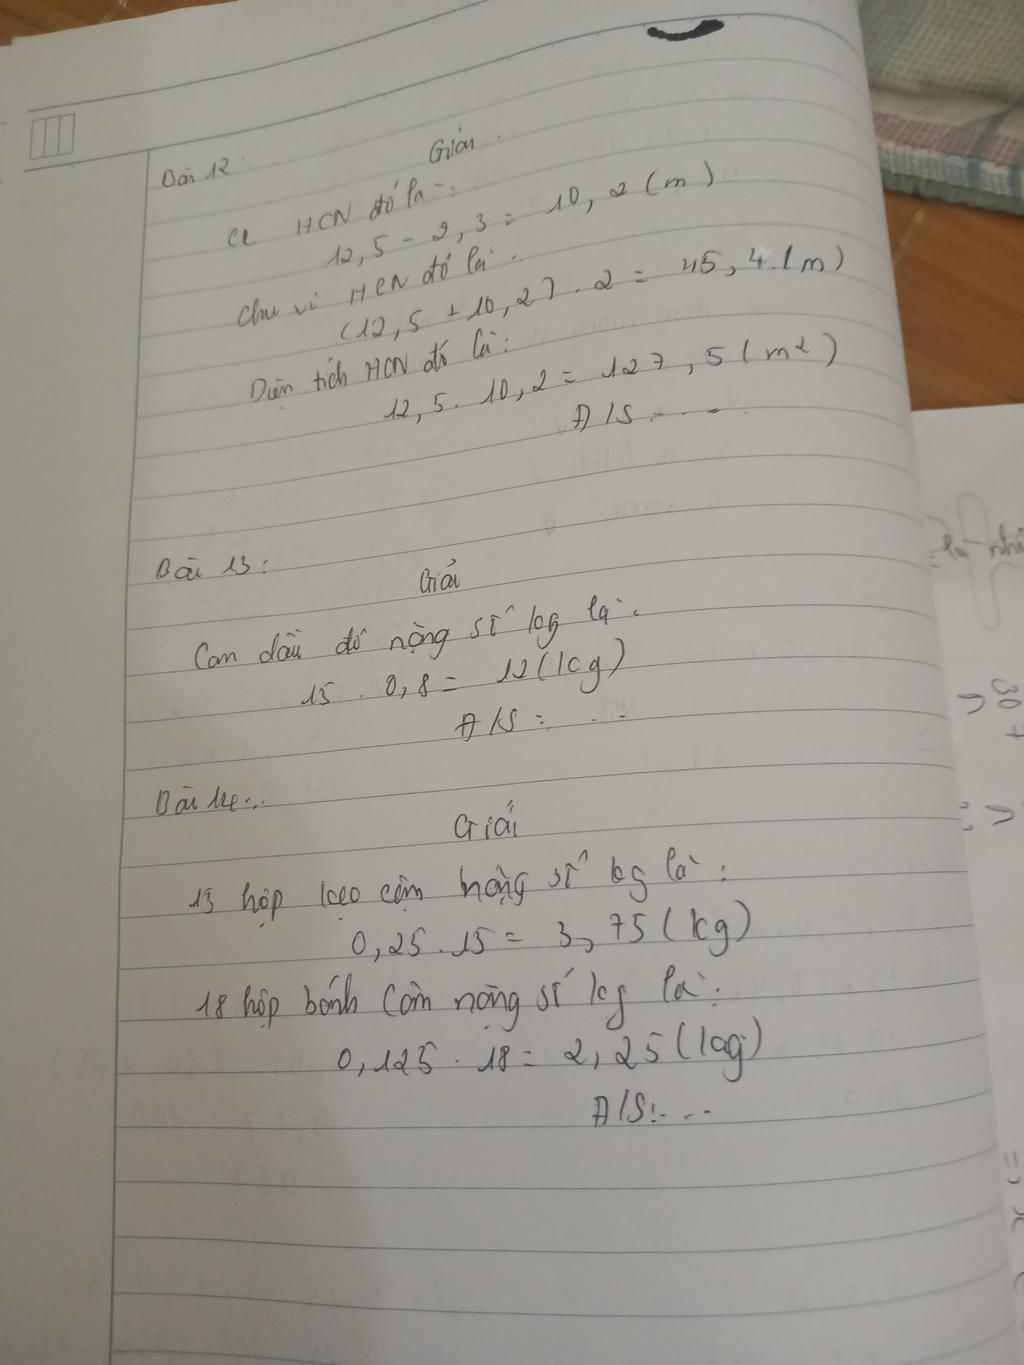 Bài 12
Giải
CR HCN đó là:
12,5 - 2,3 = 10,2 (m)
Chu vi HCN đó là:
(12,5 + 10,2) . 2 = 45,4 (m)
Diện tích HCN đó là:
12,5 . 10,2 = 127,5 (m²)
Đ/S ....
Bài 13:
Giải
Can dầu đó nặng số kg là:
15 . 0,8 = 12 (kg)
Đ/S: ...
Bài 14:..
Giải
15 hộp kẹo cân nặng số kg là:
0,25 . 15 = 3,75 (kg)
18 hộp bánh cân nặng số kg là:
0,125 . 18 = 2,25 (kg)
Đ/S: ...
30 +